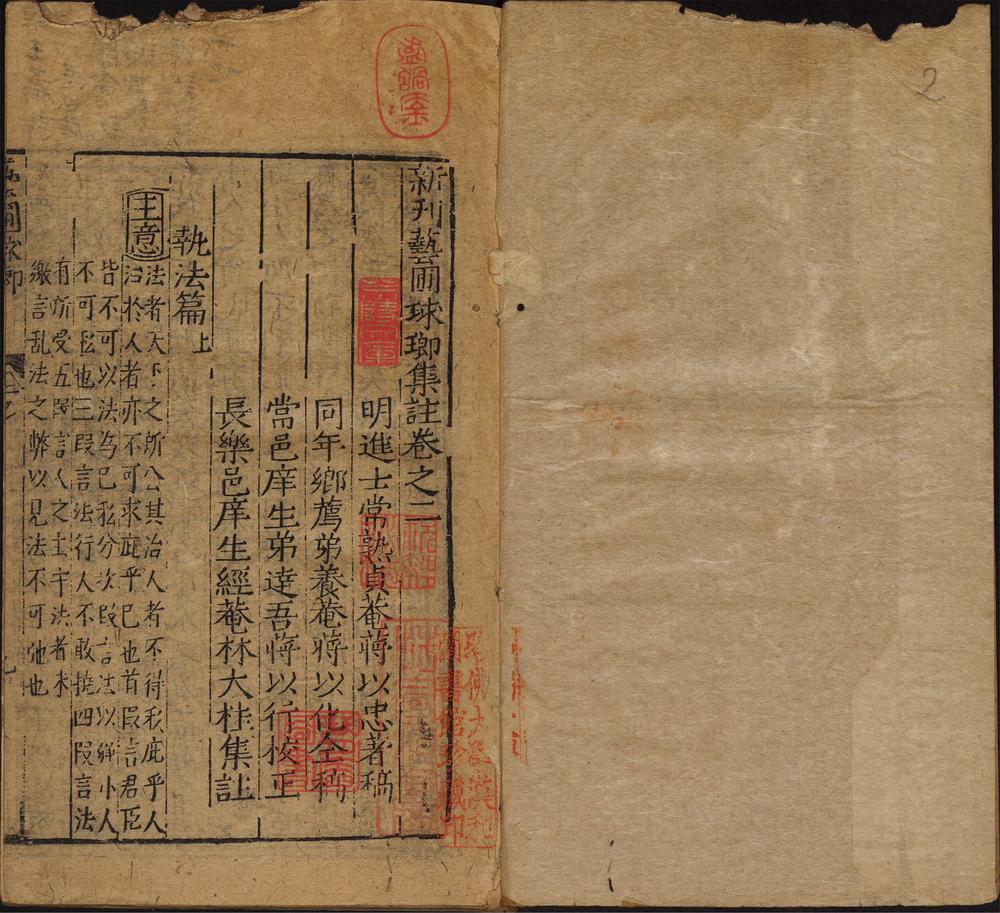 新刊藝圃球瑯集註卷之二
明進士常熟貞菴蔣以忠著稿
同年鄉薦弟養菴蔣以化仝稿
常邑庠生弟達吾蔣以行校正
長樂邑庠生經菴林大桂集註
執法篇上
主意
法者天下之所公其治人者不得私庇乎人
治於人者亦不可求庇乎已也首叚言君臣
皆不可以法為已私分次叚言法以繩小人
不可私也三叚言法行人不敢撓四叚言法
有所受五叚言人之主守法者末
繳言乱法之弊以見法不可弛也
2
圖書館珍藏印